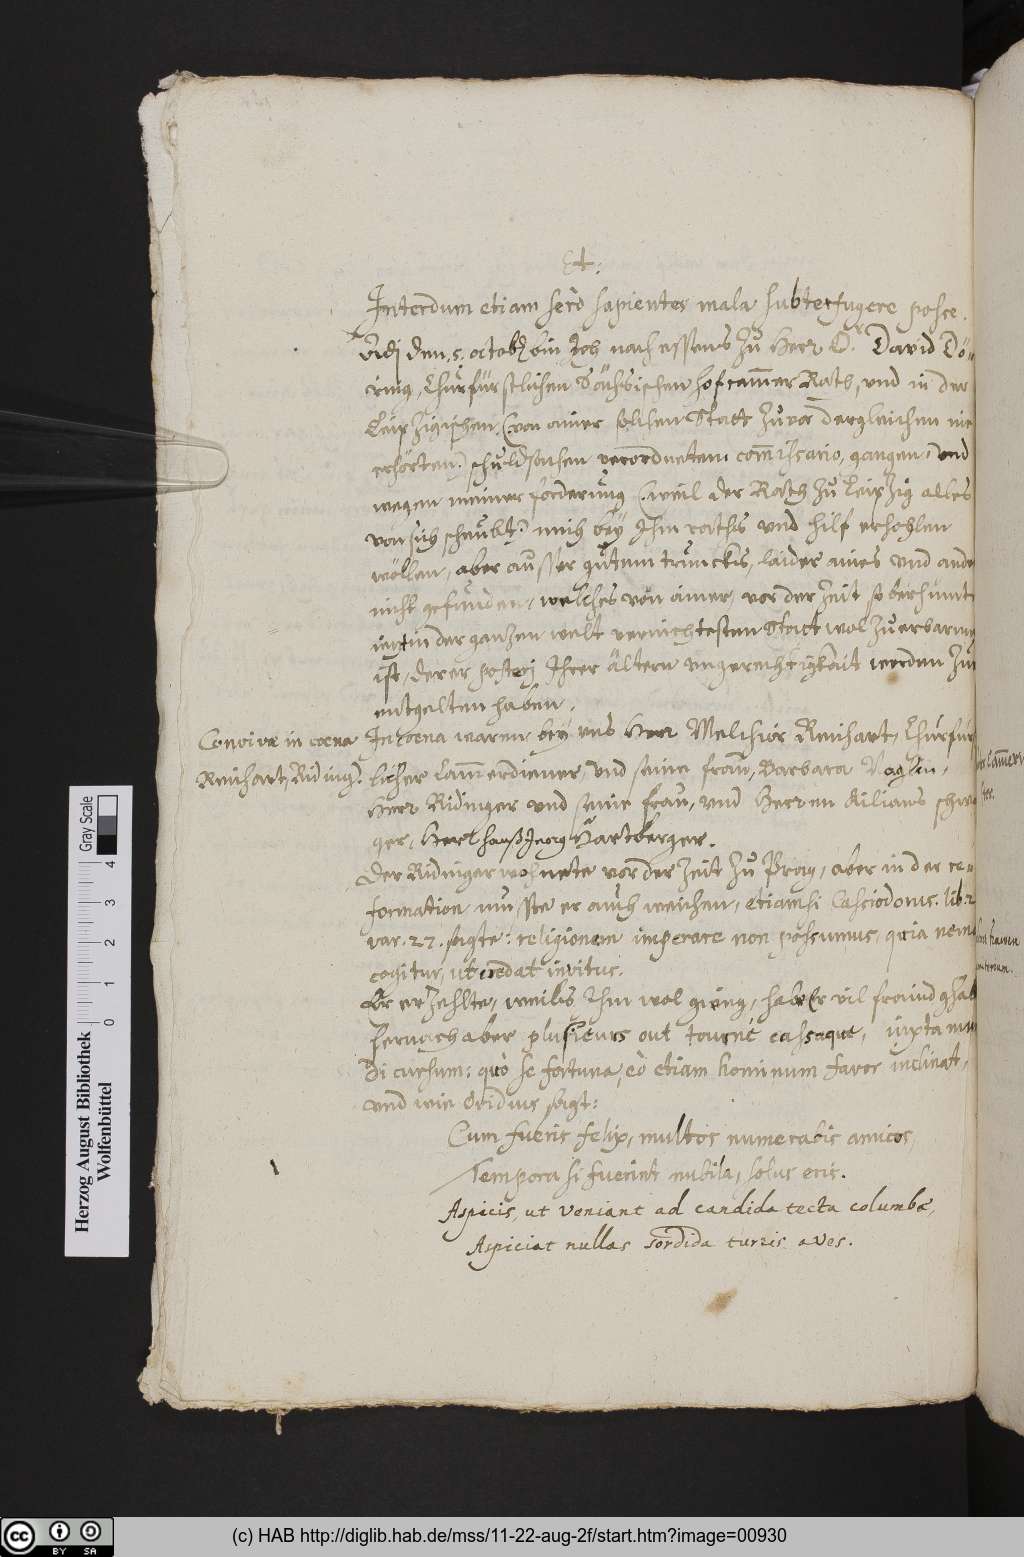 Et:
Interdum etiam serò sapientes mala subterfugere posse.
den. 5. octob. bin Ich nach essens zu Herr D. David Dö-
ring, Churfürstlichen Sächsischen hofcam̃er Rath, und in der
Leipzigischen (von ainer solchen Statt zuvor dergleichen nie
erhörten) schuldsachen verordnetem com̃issario, gangen, und
wegen meiner forderung (weil der Rath zu Leipzig alles
von sich scheubt) mich bey Ihm raths und hilf erhohlen
wöllen, aber ausser gutem trunckes, laider aines und ande
nicht gefunden, welches von ainer, vor der Zeit so berhümt
in der ganzen welt vernichtesten Statt wol zu erbarmen
ist, derer posterj Ihrer ältern ungerechtigkait werden zu
entgelten haben.
Convivæ in coena
Reinhart, Riding.
In coena waren bey uns Herr Melchior Reinhart, Churfür
licher Cam̃erdiener, und seine frau, Barbara Naglin,
Herr Ridinger und seine frau, und Herren Kilians schwa
ger, Herr hanß Jeorg Hartberger.
Der Ridinger wohnete vor der Zeit zu Prag, aber in der re-
formation muste er auch weichen, etiamsi Cassiodorus. lib. 2
var. 27. sagte: religionem imperare non possumus, quia nemo
cogitur, ut credat invitus.
Er erzehlte, weils Ihm wol gieng, hab Er vil fraind ghab
hernach aber plusieurs ont tourné cassaque, iuxta mun
di cursum: quò se fortuna, eò etiam hominum favor inclinat,
und wie Ovidius sagt:
Cum fueris felix, multos numerabis amicos,
Tempora si fuerint nubila, solus eris.
Aspicis, ut veniant ad candida tecta columbæ,
Aspiciat nullas sordida turris aves.
Herzog August Bibliothek
Wolfenbüttel
Gray Scale
0 1 2 3 4
(c) HAB http://diglib.hab.de/mss/11-22-aug-2f/start.htm?image=00930
cc BY SA